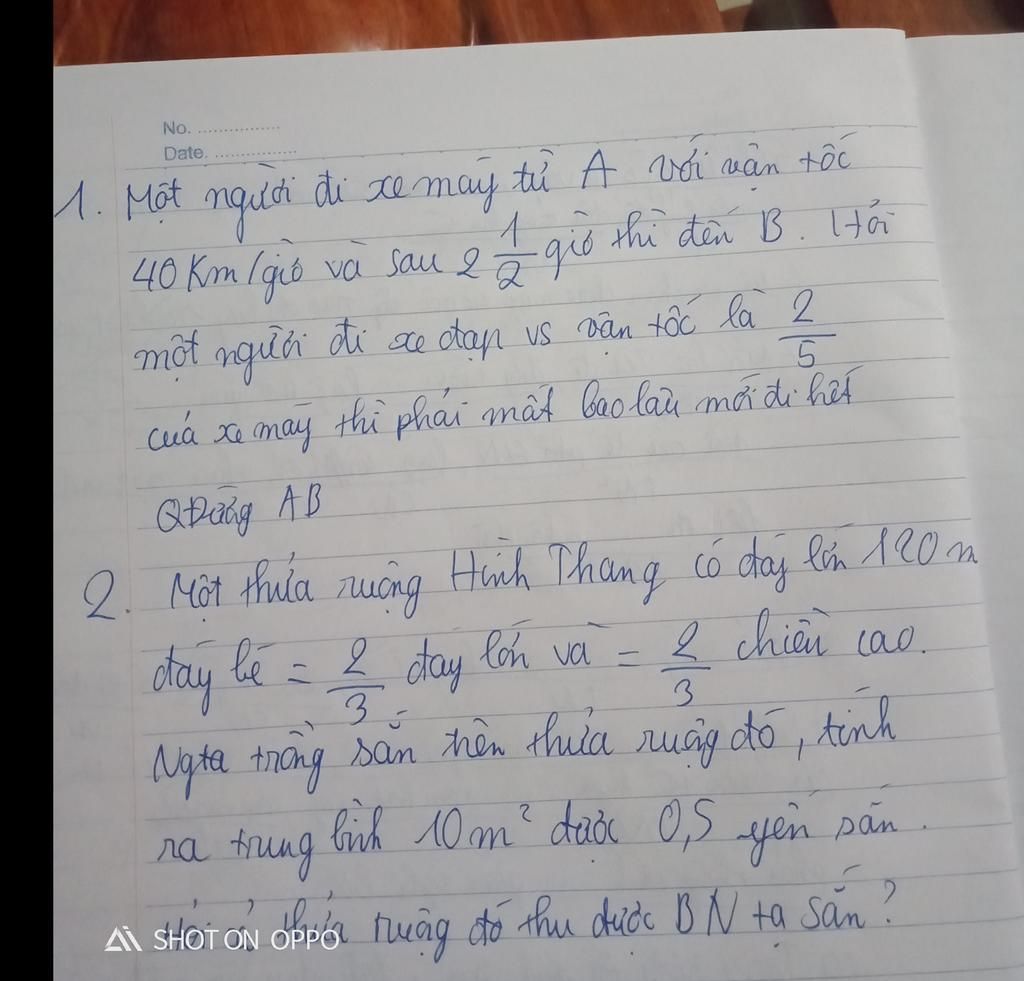 No. ................
Date. ................
1. Một người đi xe máy từ A với vận tốc
40 Km/giờ và sau 2 1/2 giờ thì đến B. Hỏi
một người đi xe đạp vs vận tốc là 2/5
của xe máy thì phải mất bao lâu mới đi hết
QĐường AB
2. Một thửa ruộng Hình Thang có đáy lớn 120 m
đáy bé = 2/3 đáy lớn và = 2/3 chiều cao.
Ngta trồng sắn trên thửa ruộng đó, tính
ra trung bình 10m² được 0,5 yến sắn.
Hỏi ở thửa ruộng đó thu được BN tạ sắn?
SHOT ON OPPO